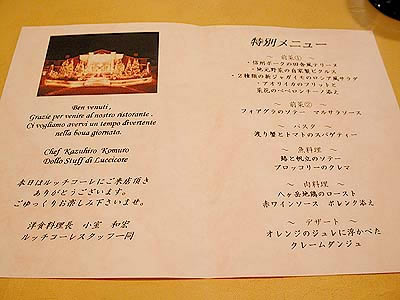 Ben venuti,
Grazie per venire al nostro ristorante.
Ci vogliamo avervi un tempo divertente
nella boua giornata.
Chef Kazuhiro Komuro
Dollo Stuff di Luccicore
本日はルッチコーレにご来店頂き
ありがとうございます。
ごゆっくりお楽しみ下さいませ。
洋食料理長 小室 和宏
ルッチコーレスタッフ一同
特別メニュー
～ 前菜① ～
・信州ポークの田舎風テリーヌ
・地元野菜の自家製ピクルス
・２種類の新ジャガイモのロシア風サラダ
・アオリイカのフリットと
菜花のペペロンチーノ添え
～ 前菜② ～
フォアグラのソテー マルサラソース
～ パスタ ～
浅り蟹とトマトのスパゲティー
～ 魚料理 ～
鱸と帆立のソテー
ブロッコリーのクレマ
～ 肉料理 ～
八ヶ岳地鶏のロースト
赤ワインソース ポレンタ添え
～ デザート ～
オレンジのジュレに浮かべた
クレームダンジュ